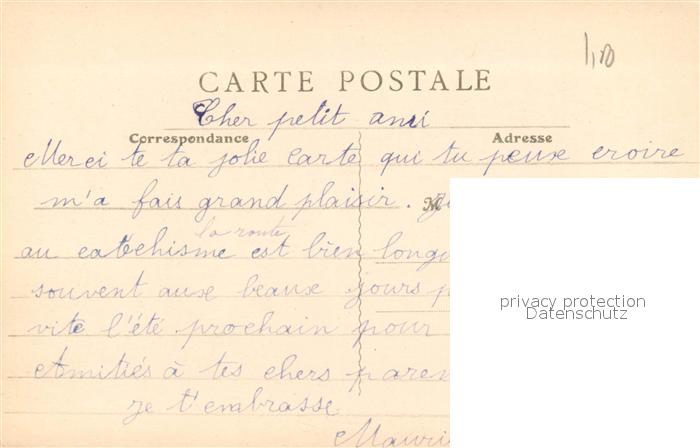 1,50
CARTE POSTALE
Cher petit ami
Correspondance Adresse
Merci te ta jolie carte qui tu peux croire
m'a fais grand plaisir.
M
la route
au catéchisme est bien
souvent aux beaux jours
vite l'été prochain pour
Amitiés à tes chers
je t'embrasse
privacy protection
Datenschutz